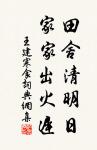 田舍清明日
家家出火遲
王建寒食詞典網集